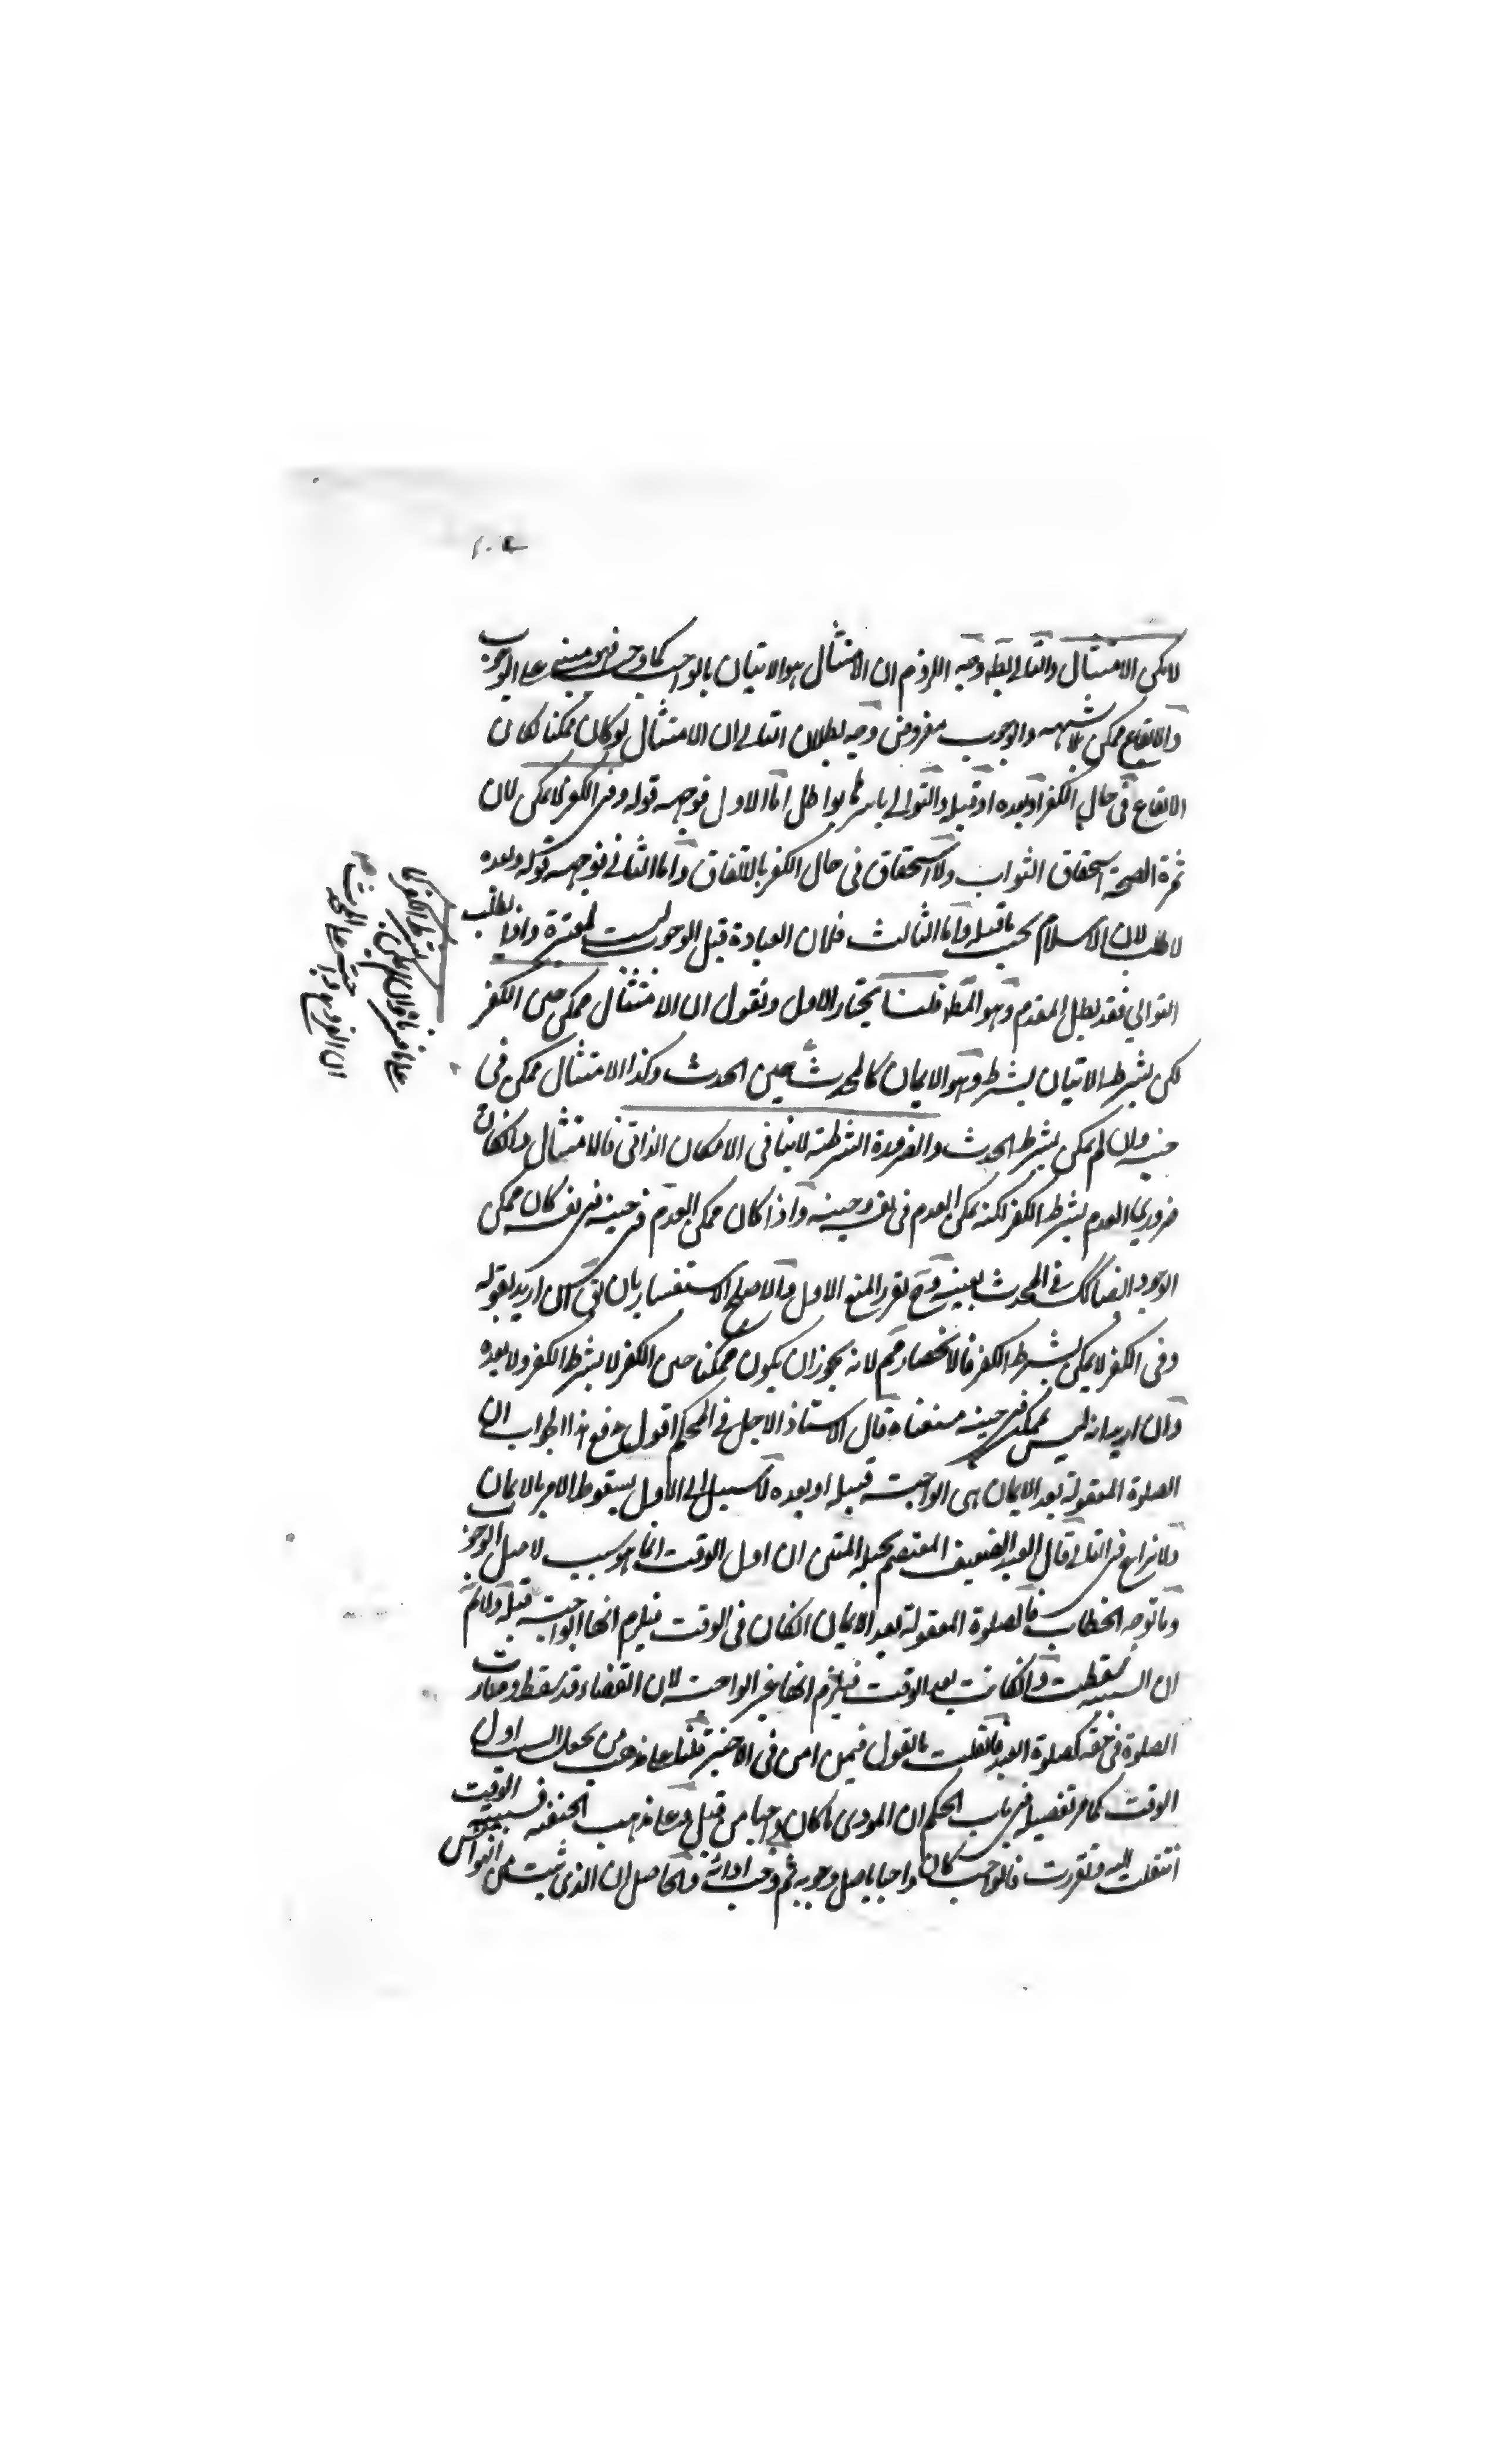 لامكن الامتثال والتالے بط وجه اللزوم ان الامتثال هو الاتيان بالواجب كما وجب فهو مبنى على الوجوب
والايقاع ممكن بلا شبهه والوجوب مفروض وجه بطلان التالے ان الامتثال لو كان ممكنا لكان
الايقاع فى حال الكفر او بعده او قبله والتوالے باسرها بواطل اما الاول فوجهه قوله وفى الكفر لا يمكن لان
ثمرة الصحة استحقاق الثواب ولا استحقاق فى حال الكفر بالاتفاق واما الثانے فوجهه قوله وبعده
لا طلب لان الاسلام يجب ما قبله واما الثالث فلان العبادة قبل الوجوب ليست بمعتبرة واذا بطلت
التوالي فقد بطل المقدم وهو المط قلنا نختار الاول ونقول ان الامتثال ممكن حين الكفر
لكن بشرط الاتيان بشرطه وهو الايمان كالمحدث حين الحدث وكذا الامتثال ممكن فى
حينه وان لم يمكن بشرط الحدث والضرورة الشرطية لا ينافى الامكان الذاتى فالامتثال وان كان
ضروري العدم بشرط الكفر لكنه يمكن العدم فى نفسه وحينه واذا كان ممكن العدم فى حينه فى نفسه كان ممكن
الوجود ايضا كك فے المحدث بعينه وح تقرر المنع الاول والاصلح الاستفسار بان يق ان اريد بقوله
وفى الكفر لا يمكن بشرط الكفر فالانحصار مم لانه يجوز ان يكون ممكنا حين الكفر لا بشرط الكفر ولا بعده
وان اريد انه ليس بممكن فى حينه منعناه قال الاستاذ الاجل فے المحكم اقول يدفع هذا الجواب ان
الصلوة المفعولة بعد الايمان هى الواجبة قبله او بعده لا سبيل الى الاول لسقوط الامر بالايمان
ولا نزاع فى التالے قال العبد الضعيف المعتصم بحبله المتين ان اول الوقت انما هو سبب لاصل الوجوب
وما توجه الخطاب فالصلوة المفعولة بعد الايمان ان كان فى الوقت فيلزم انها الواجبة قبله ولا نم
ان السببية سقطت وان كانت بعد الوقت فيلزم انها غير الواجبة لان القضاء قد سقط وصارت
الصلوة فى حقه كصلوة العبد فان قلت ما تقول فيمن امن فى الاخير قلنا على مذهب من يجعل السبب اول
الوقت كما مر تفصيله فى باب الحكم ان المودى ما كان واجبا من قبل وعلى مذهب الحنفية فسببية الوقت
انتقلت اليه وتقررت فالواجب كان واجبا باصل وجوبه ثم وجب اداؤه والحاصل ان الذى يثبت من